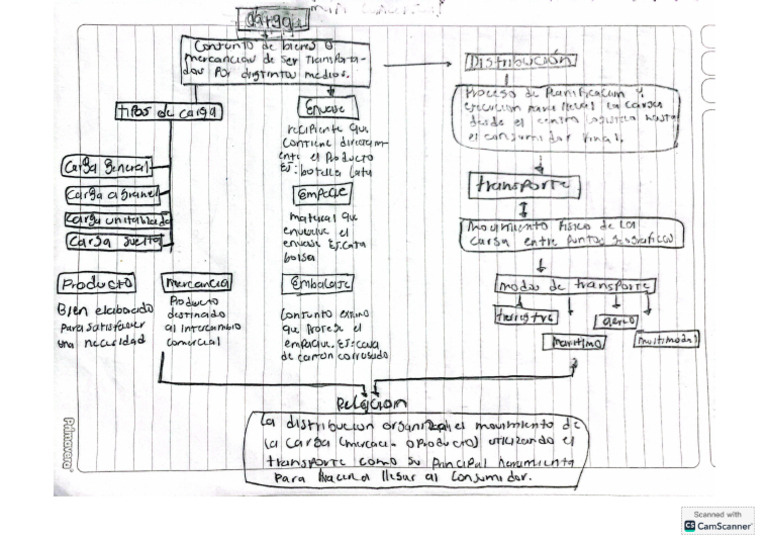 Carga
Conjunto de bienes o
mercancias de ser transporta-
das por distintos medios.
Distribución
Proceso de Planificacion Y
ejecucion para llevar la carga
desde el centro logistico hasta
el consumidor final.
tipos de carga
Carga general
Carga a granel
Carga unitarizada
Carga suelta
Envase
recipiente que
contiene directam-
ente el Producto
EJ: botella lata
Empaque
Material que
envuelve el
envase EJ: cata
bolsa
Embalaje
Conjunto extino
que protege el
empaque. EJ: caja
de carton corrugado
transporte
Movimiento fisico de la
carga entre puntos geograficos
modos de transporte
terrestre
maritimo
aereo
multimodal
Producto
Bien elaborado
Para satisfacer
una necesidad
mercancia
Producto
destinado
al intercambio
comercial
Relacion
La distribucion organiza el movimiento de
la carga (mercacia o Producto) utilizando el
transporte como su principal herramienta
Para hacerla llegar al consumidor.
Primavera
Scanned with
CS CamScanner